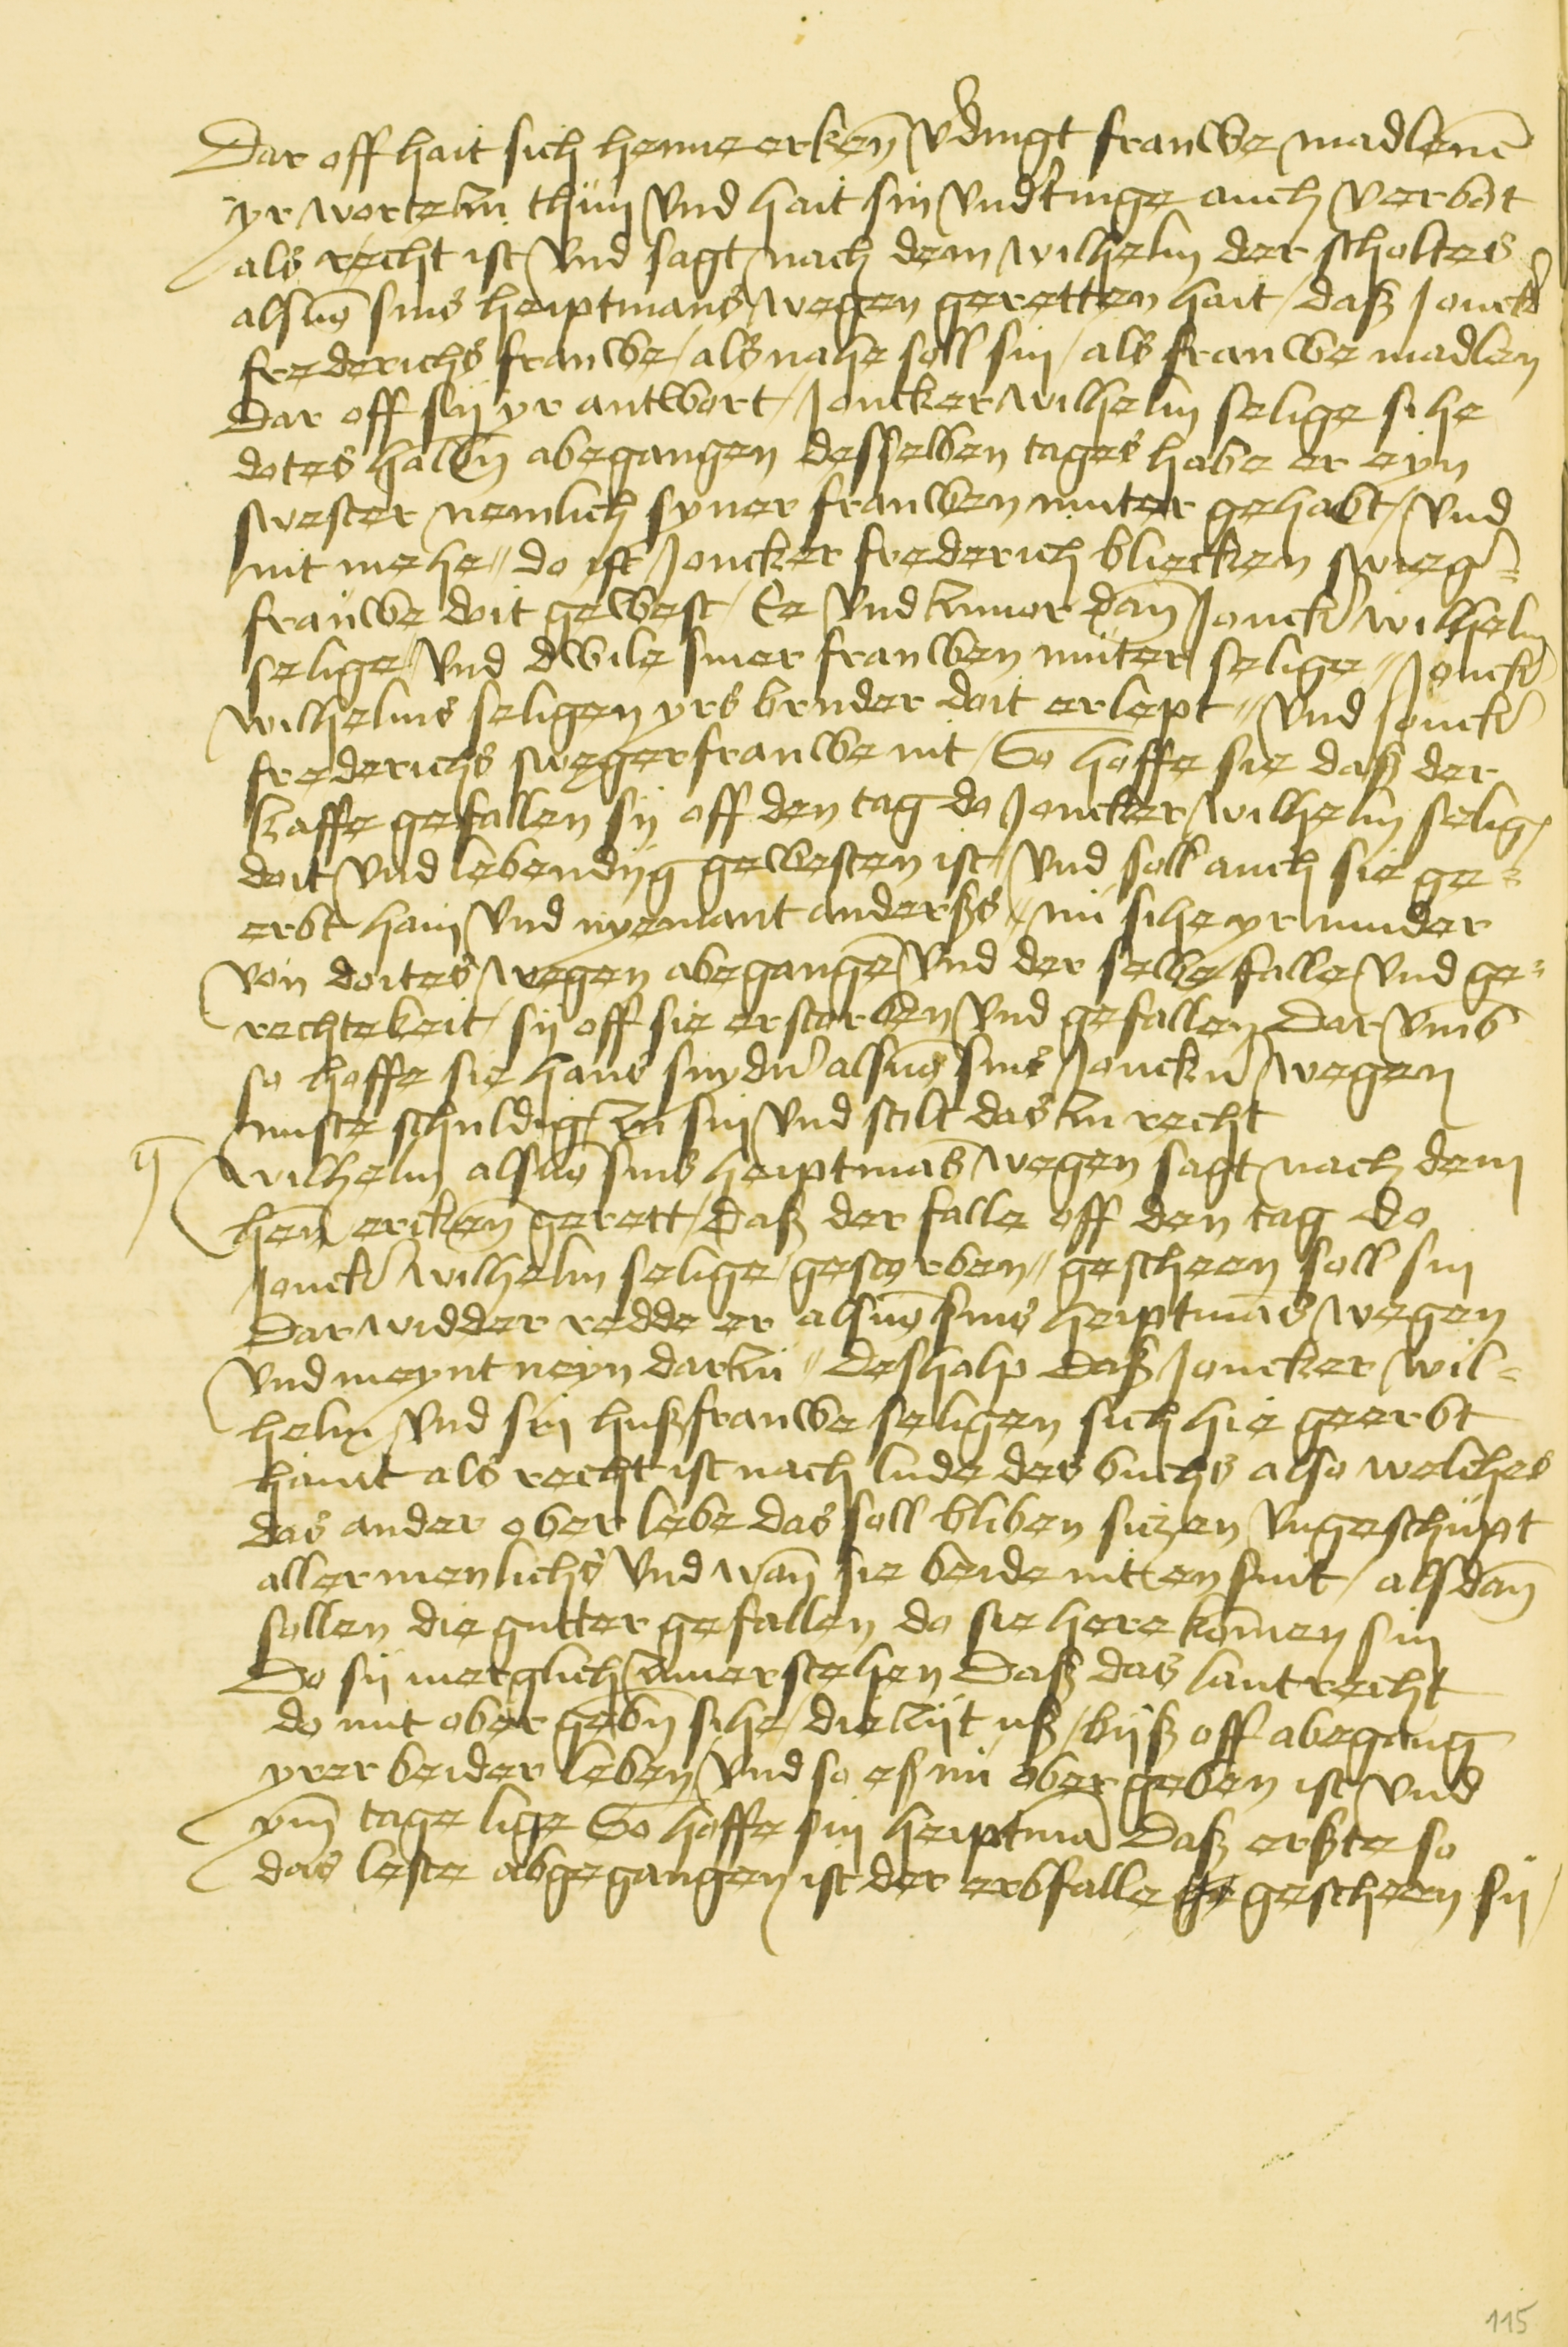 Dar off hait sich henne erken̄ v̾dingt frauwe madlenē
yr worte zu thun vnd hait sin vnd̾tinge auch verbot
als recht ist vnd sagt nach dem wilhelm der scholtes
als vō sins heiptmans wegen geretten hait / daß Jonck̾
frederichs frauwe / als nahe soll sin / als frauwe madlen
Dar off sij yr antwort / Joncker wilhelm selige sihe
dotes halbn̄ abegangen desselben tages habe er eyn
swester nemlich syner frauwen muter gehabt / vnd
nit mehe // do ist Joncker frederich bliecken sweg̾ =
frauwe doit gewest / Ee vnd zuuor dan̄ Jonck̾ wilhelm
selige / vnd dwile siner frauwen muter selige // Jonck̾
wilhelms seligen yrs bruder doit erlept // vnd Jonck̾
frederichs swegerfrauwe nit / So hoffe sie daß der
kaffe gefallen sij off den tag do Joncker wilhelm selig
doit vnd lebendijg gewesten ist / vnd soll auch sie ge=
erbt hain vnd nyemant anderßs // nu sihe yr muder
von doites wegen abegangē vnd der selbe falle vnd ge=
rechtekeit / sij off sie erstorben vnd gefallen Dar vmb
so hoffe sie hans snyd̾n als vō sins Jonck̾n wegen
nuste schuldig zu sin vnd stilt das zu recht
wilhelm als vō sins heiptmās wegen sagt nach dem
hen̄ ercken̄ gerett / daß der falle off den tag do
Jonck̾ wilhelm selige / gestorben // gescheen soll sin
Darwidder redde er als vō sins heiptmās wegen
vnd meynt neyn darzu // Deshalp daß Joncker wil=
helm vnd sin hußfrauwe seligen sich hie geerbt
haint als recht ist nach lude des buchs also welches
das ander ober lebe das soll bliben siczen vngeschupt
allermenlichs vnd wan̄ sie beide nit en sint / alsdan̄
sollen die gutter gefallen do sie here komen sin
Do sij merglich zuuerstehen Daß das lantrecht
do mit ober gebn̄ sihe / die zijt uß / bijß off abegang
yrer beider leben / vnd so eß nu ober geben ist vnd
ym̄ tage lige So hoffe sin heiptmā Daß erßte so
das leste abgegangen ist der erbfalle gescheen sij /
115